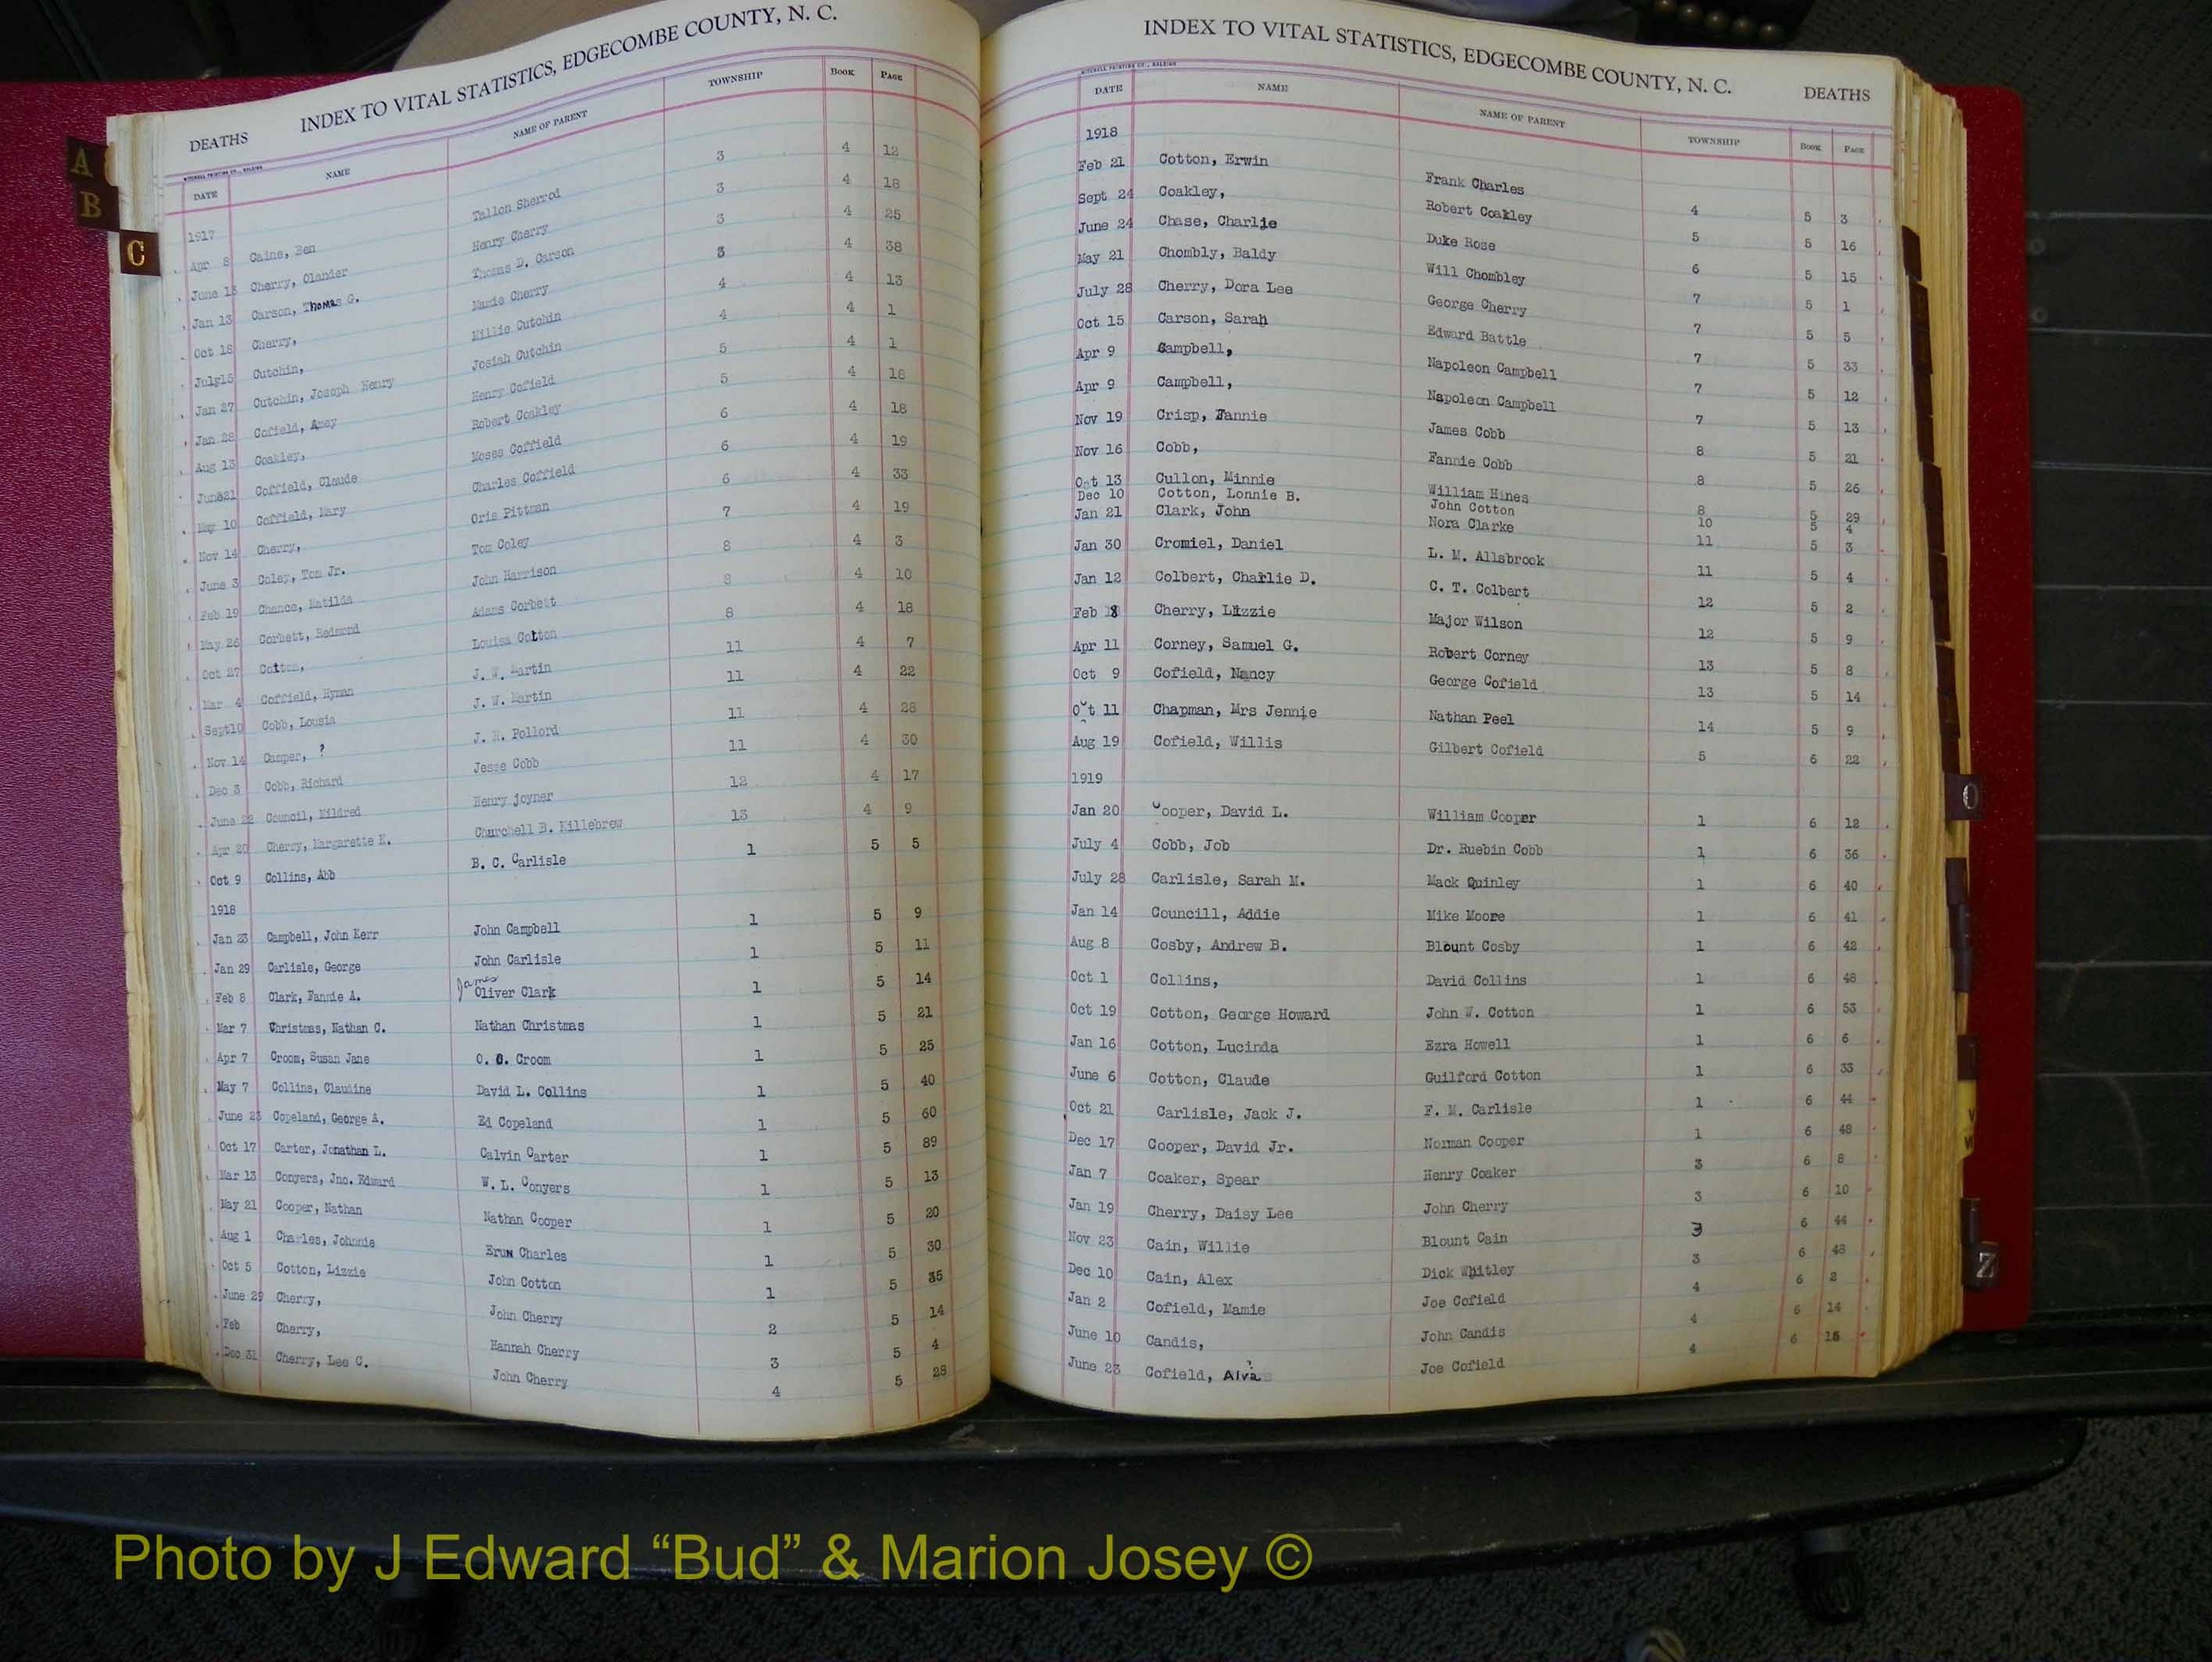 DEATHS INDEX TO VITAL STATISTICS, EDGECOMBE COUNTY, N. C.
MITCHELL PRINTING CO., RALEIGH
DATE NAME NAME OF PARENT TOWNSHIP BOOK PAGE
1917
Apr 8 Caine, Ben Tallon Sherrod 3 4 12
June 13 Cherry, Olander Henry Cherry 3 4 18
Jan 13 Carson, Thomas G. Thomas D. Carson 3 4 25
Oct 18 Cherry, Mamie Cherry 3 4 38
July15 Cutchin, Millie Cutchin 4 4 13
Jan 27 Cutchin, Joseph Henry Josiah Cutchin 4 4 1
Jan 28 Cofield, Amey Henry Cofield 5 4 1
Aug 13 Coakley, Robert Coakley 5 4 18
June21 Coffield, Claude Moses Coffield 6 4 18
May 10 Coffield, Mary Charles Coffield 6 4 19
Nov 14 Cherry, Oris Pittman 6 4 33
June 3 Coley, Tom Jr. Tom Coley 7 4 19
Feb 19 Chance, Matilda John Harrison 8 4 3
May 26 Corbett, Redmond Adams Corbett 8 4 10
Oct 27 Cotton, Louisa Cotton 8 4 18
Mar 4 Coffield, Hyman J. W. Martin 11 4 7
Sept10 Cobb, Lousia J. W. Martin 11 4 22
Nov 14 Camper, ? J. H. Pollord 11 4 28
Dec 3 Cobb, Richard Jesse Cobb 11 4 30
June 22 Council, Mildred Henry joyner 12 4 17
Apr 20 Cherry, Margarette K. Churchell B. Killebrew 13 4 9
Oct 9 Collins, Abb B. C. Carlisle 1 5 5
1918
Jan 23 Campbell, John Kerr John Campbell 1 5 9
Jan 29 Carlisle, George John Carlisle 1 5 11
Feb 8 Clark, Fannie A. James Oliver Clark 1 5 14
Mar 7 Christmas, Nathan C. Nathan Christmas 1 5 21
Apr 7 Croom, Susan Jane O. C. Croom 1 5 25
May 7 Collins, Claudine David L. Collins 1 5 40
June 23 Copeland, George A. Ed Copeland 1 5 60
Oct 17 Carter, Jonathan L. Calvin Carter 1 5 89
Mar 13 Conyers, Jno. Edward W. L. Conyers 1 5 13
May 21 Cooper, Nathan Nathan Cooper 1 5 20
Aug 1 Charles, Johnnie Erun Charles 1 5 30
Oct 5 Cotton, Lizzie John Cotton 1 5 35
June 29 Cherry, John Cherry 2 5 14
Feb Cherry, Hannah Cherry 3 5 4
Dec 31 Cherry, Lee C. John Cherry 4 5 28
INDEX TO VITAL STATISTICS, EDGECOMBE COUNTY, N. C. DEATHS
MITCHELL PRINTING CO., RALEIGH
DATE NAME NAME OF PARENT TOWNSHIP BOOK PAGE
1918
Feb 21 Cotton, Erwin Frank Charles 4 5 3
Sept 24 Coakley, Robert Coakley 5 5 16
June 24 Chase, Charlie Duke Rose 6 5 15
May 21 Chombly, Baldy Will Chombley 7 5 1
July 28 Cherry, Dora Lee George Cherry 7 5 5
Oct 15 Carson, Sarah Edward Battle 7 5 33
Apr 9 Campbell, Napoleon Campbell 7 5 12
Apr 9 Campbell, Napoleon Campbell 7 5 13
Nov 19 Crisp, Fannie James Cobb 8 5 21
Nov 16 Cobb, Fannie Cobb 8 5 26
Oct 13 Cullon, Minnie William Hines 8 5 29
Dec 10 Cotton, Lonnie B. John Cotton 10 5 4
Jan 21 Clark, John Nora Clarke 11 5 3
Jan 30 Cromiel, Daniel L. M. Allsbrook 11 5 4
Jan 12 Colbert, Charlie D. C. T. Colbert 12 5 2
Feb 18 Cherry, Lizzie Major Wilson 12 5 9
Apr 11 Corney, Samuel G. Robert Corney 13 5 8
Oct 9 Cofield, Nancy George Cofield 13 5 14
Oct 11 Chapman, Mrs Jennie Nathan Peel 14 5 9
Aug 19 Cofield, Willis Gilbert Cofield 5 6 22
1919
Jan 20 Cooper, David L. William Cooper 1 6 12
July 4 Cobb, Job Dr. Ruebin Cobb 1 6 36
July 28 Carlisle, Sarah M. Mack Quinley 1 6 40
Jan 14 Councill, Addie Mike Moore 1 6 41
Aug 8 Cosby, Andrew B. Blount Cosby 1 6 42
Oct 1 Collins, David Collins 1 6 48
Oct 19 Cotton, George Howard John W. Cotton 1 6 53
Jan 16 Cotton, Lucinda Ezra Howell 1 6 6
June 6 Cotton, Claude Guilford Cotton 1 6 33
Oct 21 Carlisle, Jack J. F. M. Carlisle 1 6 44
Dec 17 Cooper, David Jr. Norman Cooper 1 6 48
Jan 7 Coaker, Spear Henry Coaker 3 6 8
Jan 19 Cherry, Daisy Lee John Cherry 3 6 10
Nov 23 Cain, Willie Blount Cain 3 6 44
Dec 10 Cain, Alex Dick Whitley 3 6 48
Jan 2 Cofield, Mamie Joe Cofield 4 6 2
June 10 Candis, John Candis 4 6 14
June 23 Cofield, Alva Joe Cofield 4 6 15
A
B
C
O
V
W
Z
Photo by J Edward “Bud” & Marion Josey ©